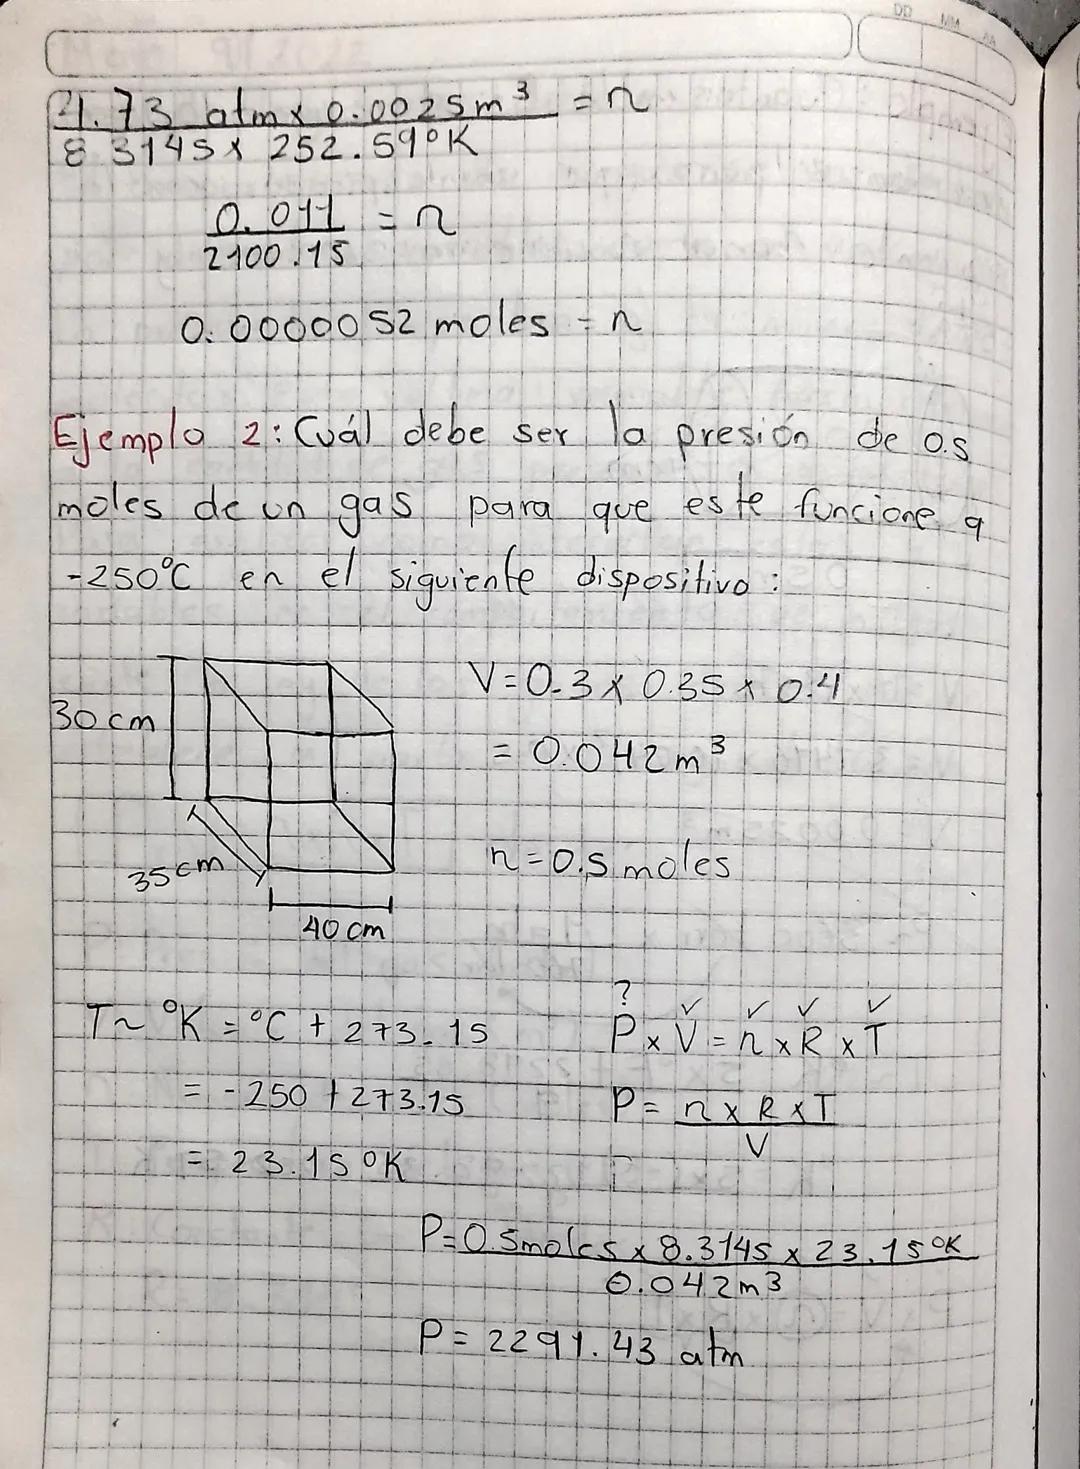 DD MM AA
4.73 atm x 0.0025m³ = n
8.3145 x 252.59°K
0.011 = n
2100.15
0.0000052 moles = n
Ejemplo 2: Cuál debe ser la presión de 0.5
moles de un gas para que este funcione a
-250°C en el siguiente dispositivo:
30 cm
V=0.3 x 0.35 x 0.4
= 0.042m³
35cm
n=0.5 moles
40 cm
T~ °K = °C + 273.15
= -250 + 273.15
= 23.15 °K
?
✓ ✓ ✓ ✓
P x V = n x R x T
P = n x R x T
V
P=0.5moles x 8.3145 x 23.15°K
0.042m3
P= 2291.43 atm